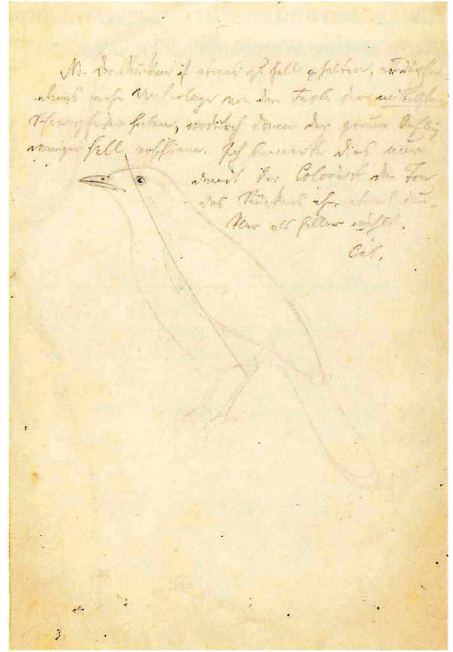 NB. Der Rücken ist etwas zu hell gehalten, er dürfte
etwas mehr Unterlage von der Farbe der mittelsten
Schwanzfedern haben, wodurch dann der graue
weniger hell erschiene. Ich bemerke dies nur
damit der Colorist den Ton
des Rückens eher etwas dun-
kler als heller
Cab.
3.